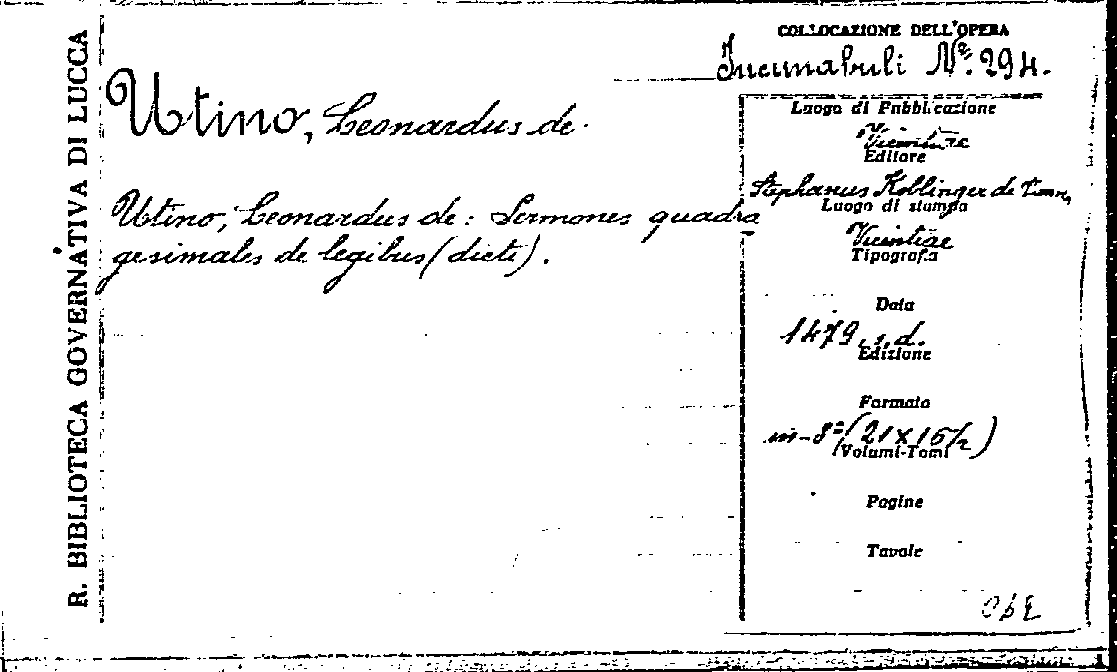 R. BIBLIOTECA GOVERNATIVA DI LUCCA
Utino, Leonardus de.
Utino, Leonardus de: Sermones quadra
gesimales de legibus (dicti).
COLLOCAZIONE DELL'OPERA
Incunabuli Nº. 294.
Luogo di Pubblicazione
Vicentiae
Editore
Stephanus Koblinger de
Luogo di stampa
Vicentiae
Tipografia
Data
1479, s.d.
Edizione
Formato
in-8º (21 x 15/2)
Volumi-Tomi
Pagine
Tavole